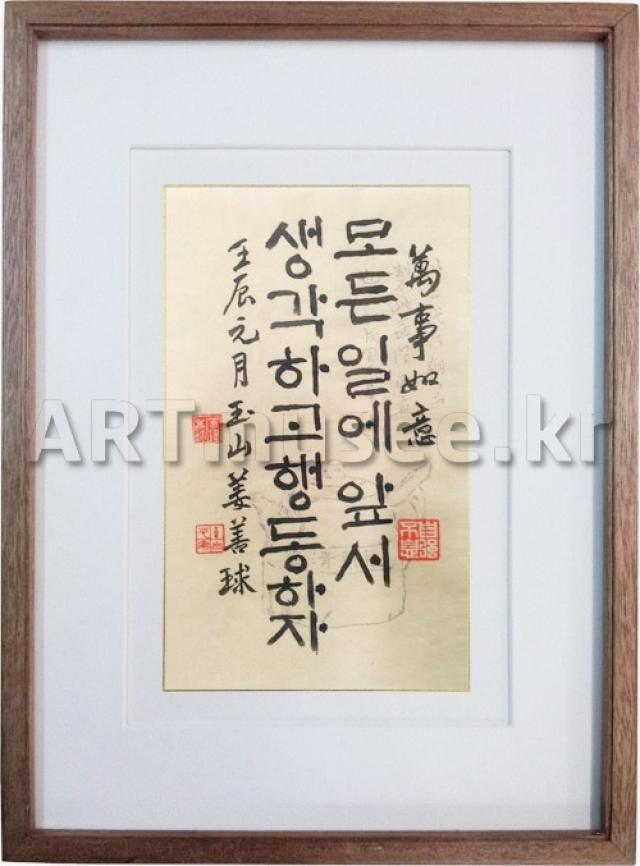 萬事如意
모든일에 앞서
생각하고행동하자
壬辰元月 玉山 姜善球
自强不息
ARTmusee.kr